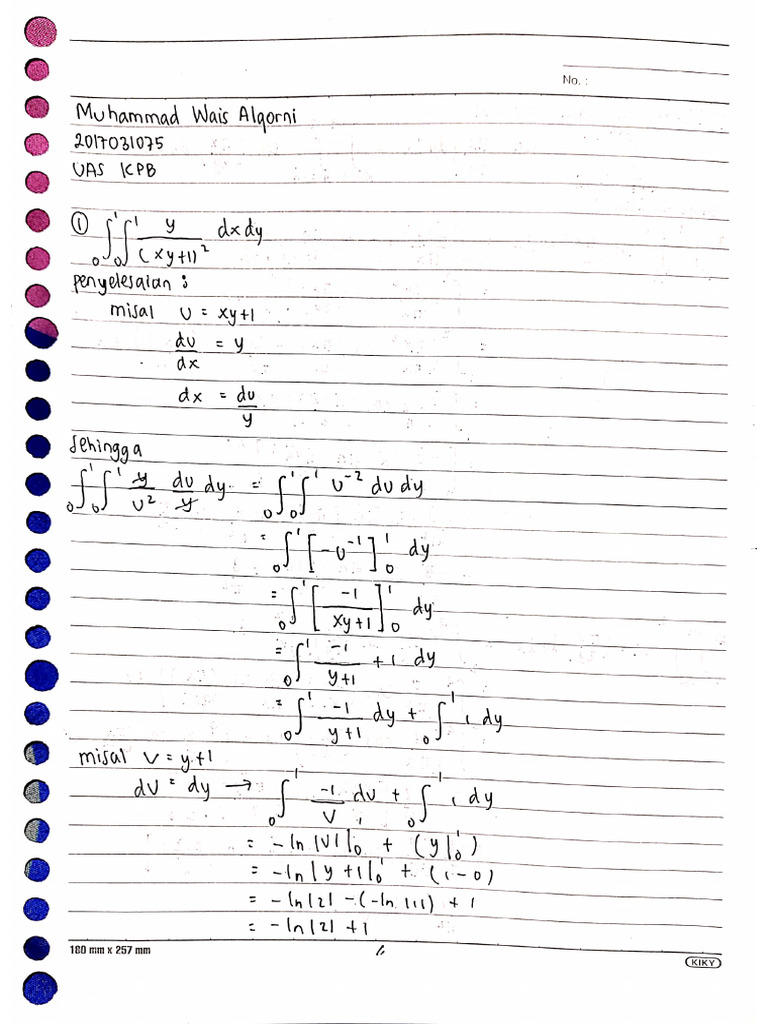 No. :
Muhammad Wais Alqorni
2017031075
UAS KPB
① ∫₀¹ ∫₀¹ y/(xy+1)² dx dy
penyelesaian :
misal u = xy+1
du/dx = y
dx = du/y
Sehingga
∫₀¹ ∫₀¹ y/u² du/y dy = ∫₀¹ ∫₀¹ u⁻² du dy
= ∫₀¹ [-u⁻¹]₀¹ dy
= ∫₀¹ [-1/(xy+1)]₀¹ dy
= ∫₀¹ -1/(y+1) + 1 dy
= ∫₀¹ -1/(y+1) dy + ∫₀¹ 1 dy
misal v = y+1
dv = dy → ∫₀¹ -1/v dv + ∫₀¹ 1 dy
= -ln |v||₀¹ + (y|₀¹)
= -ln|y+1|₀¹ + (1-0)
= -ln|2| -(-ln |1|) + 1
= -ln|2| +1
180 mm x 257 mm
KIKY